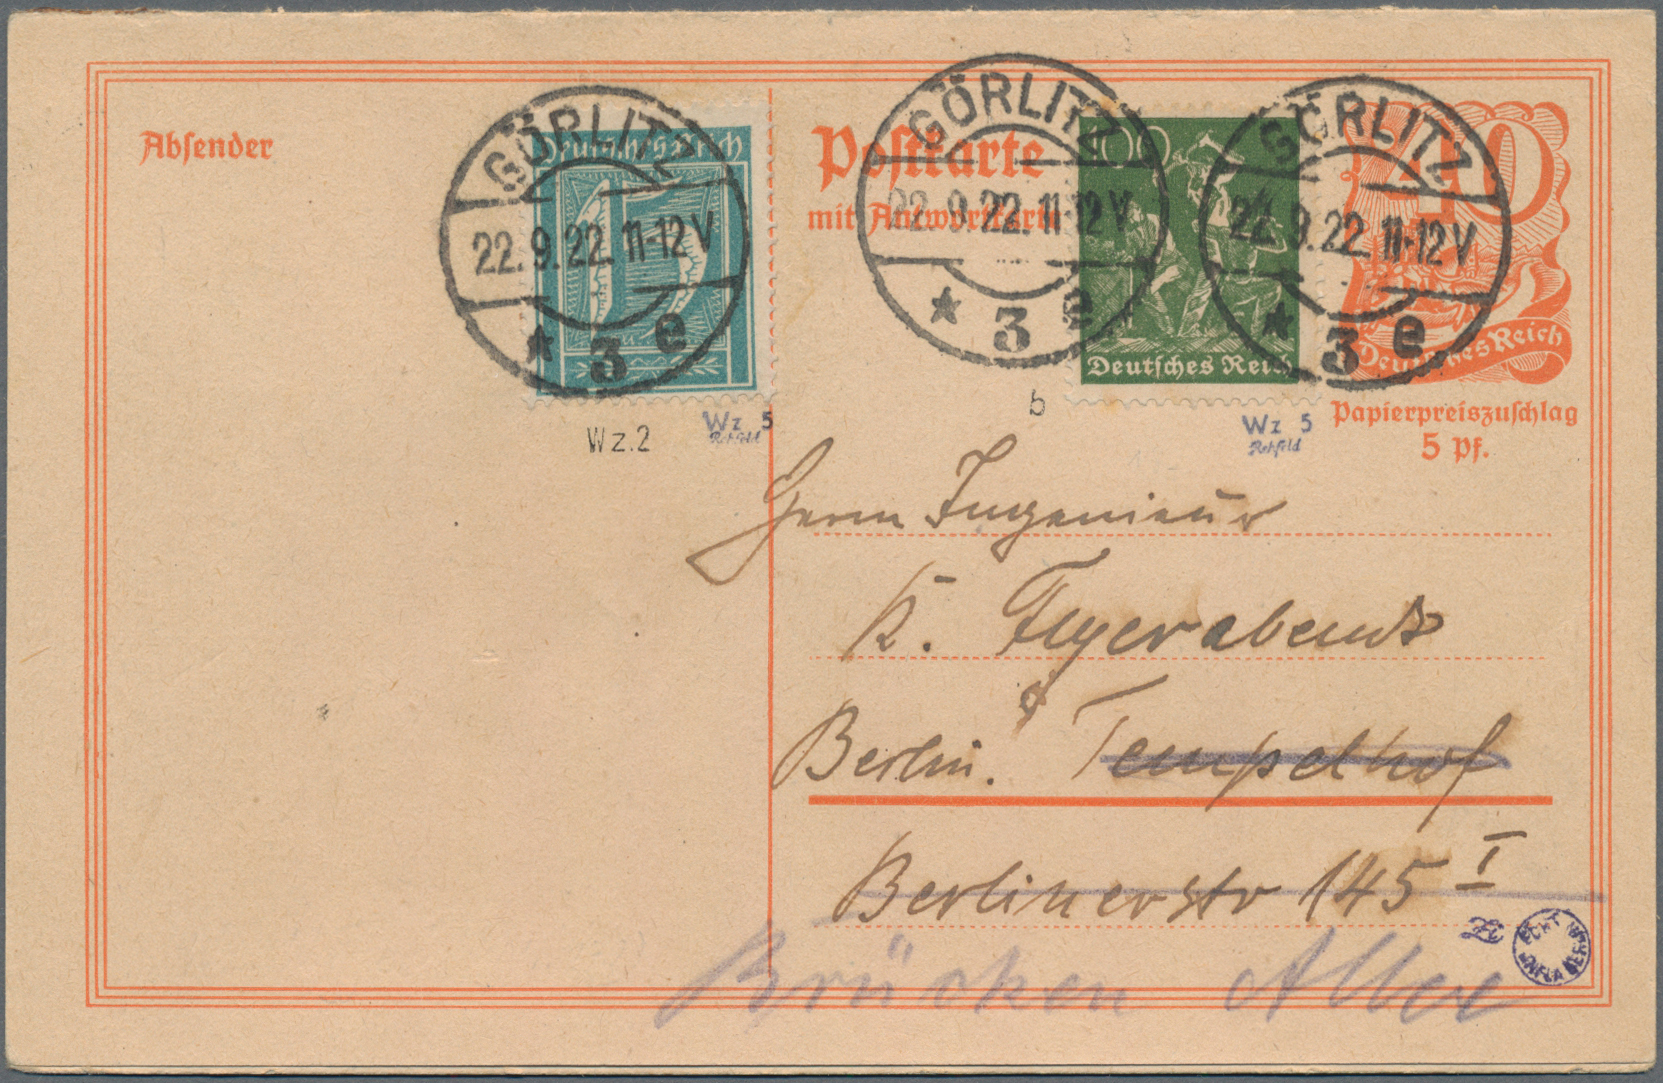 Absender
Deutsches Reich
GÖRLITZ
22.9.22. 11-12 V
* 3 e
Wz.2
Wz 5
Rehfeld
Postkarte
mit Antwortkarte
GÖRLITZ
22.9.22. 11-12 V
* 3 e
100
Deutsches Reich
b
Wz 5
Rehfeld
GÖRLITZ
22.9.22. 11-12 V
* 3 e
40
Deutsches Reich
Papierpreiszuschlag
5 Pf.
Herrn Ingenieur
K. Feyerabend
Berlin. Tempelhof
Berlinerstr 145 I
Brücken Allee
ECHT INFLA BERLIN